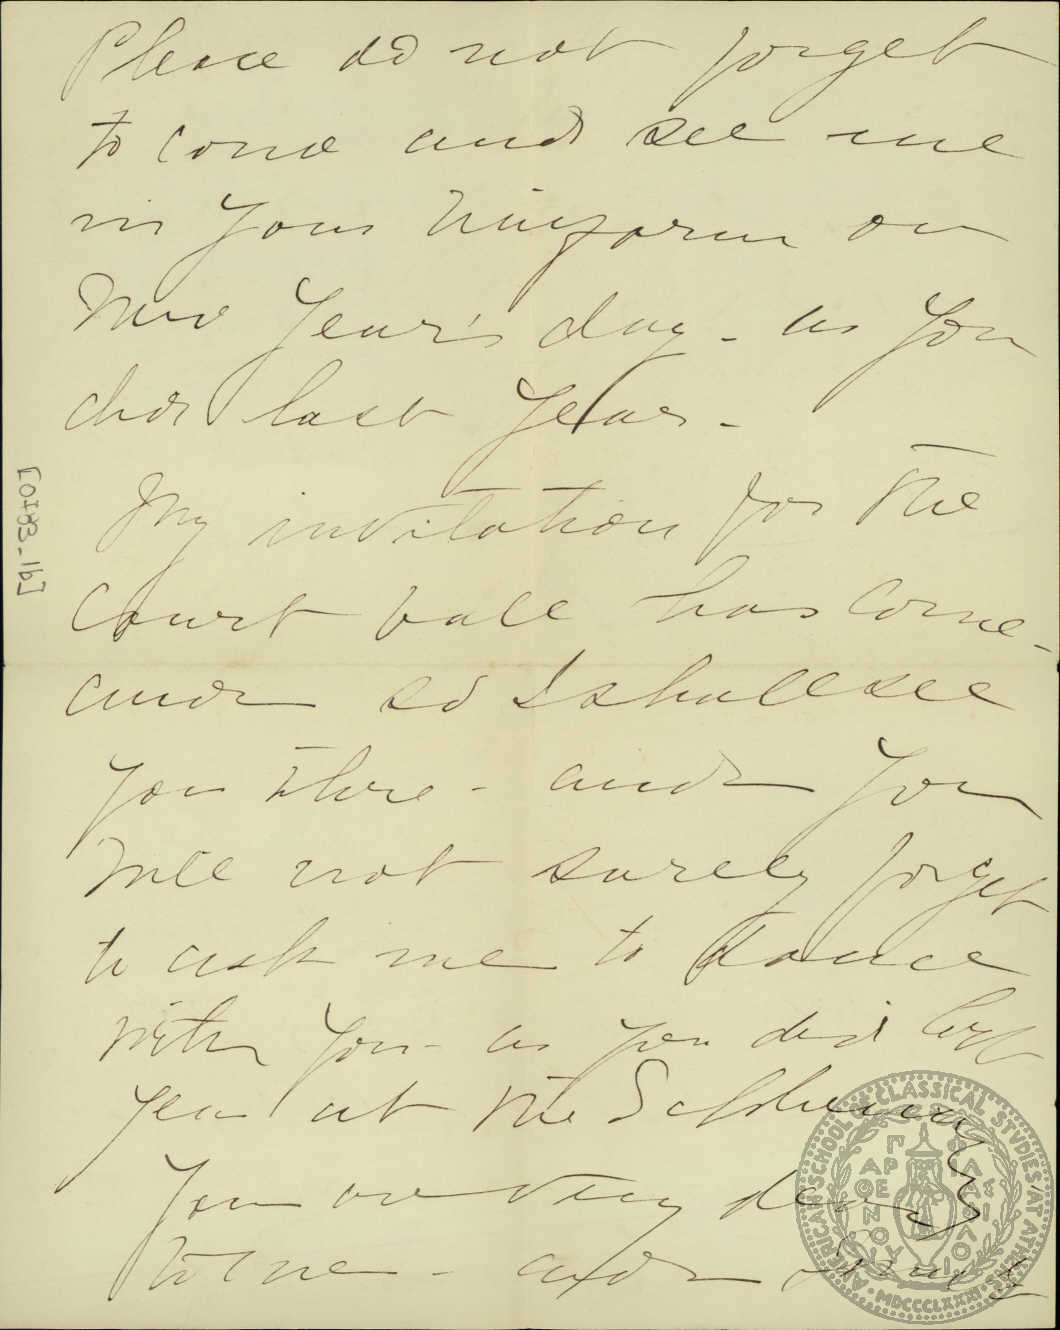 Please do not forget
to come and see me
in your Uniform on
New Year's day - as you
did last year -
My invitation for the
Court ball has come -
and so I shall see
you there - and you
will not surely forget
to ask me to dance
with you - as you did last
year at the
You are very dear
to me - and
[0183-1b]
AMERICAN SCHOOL OF CLASSICAL STUDIES AT ATHENS
MDCCCLXXXI